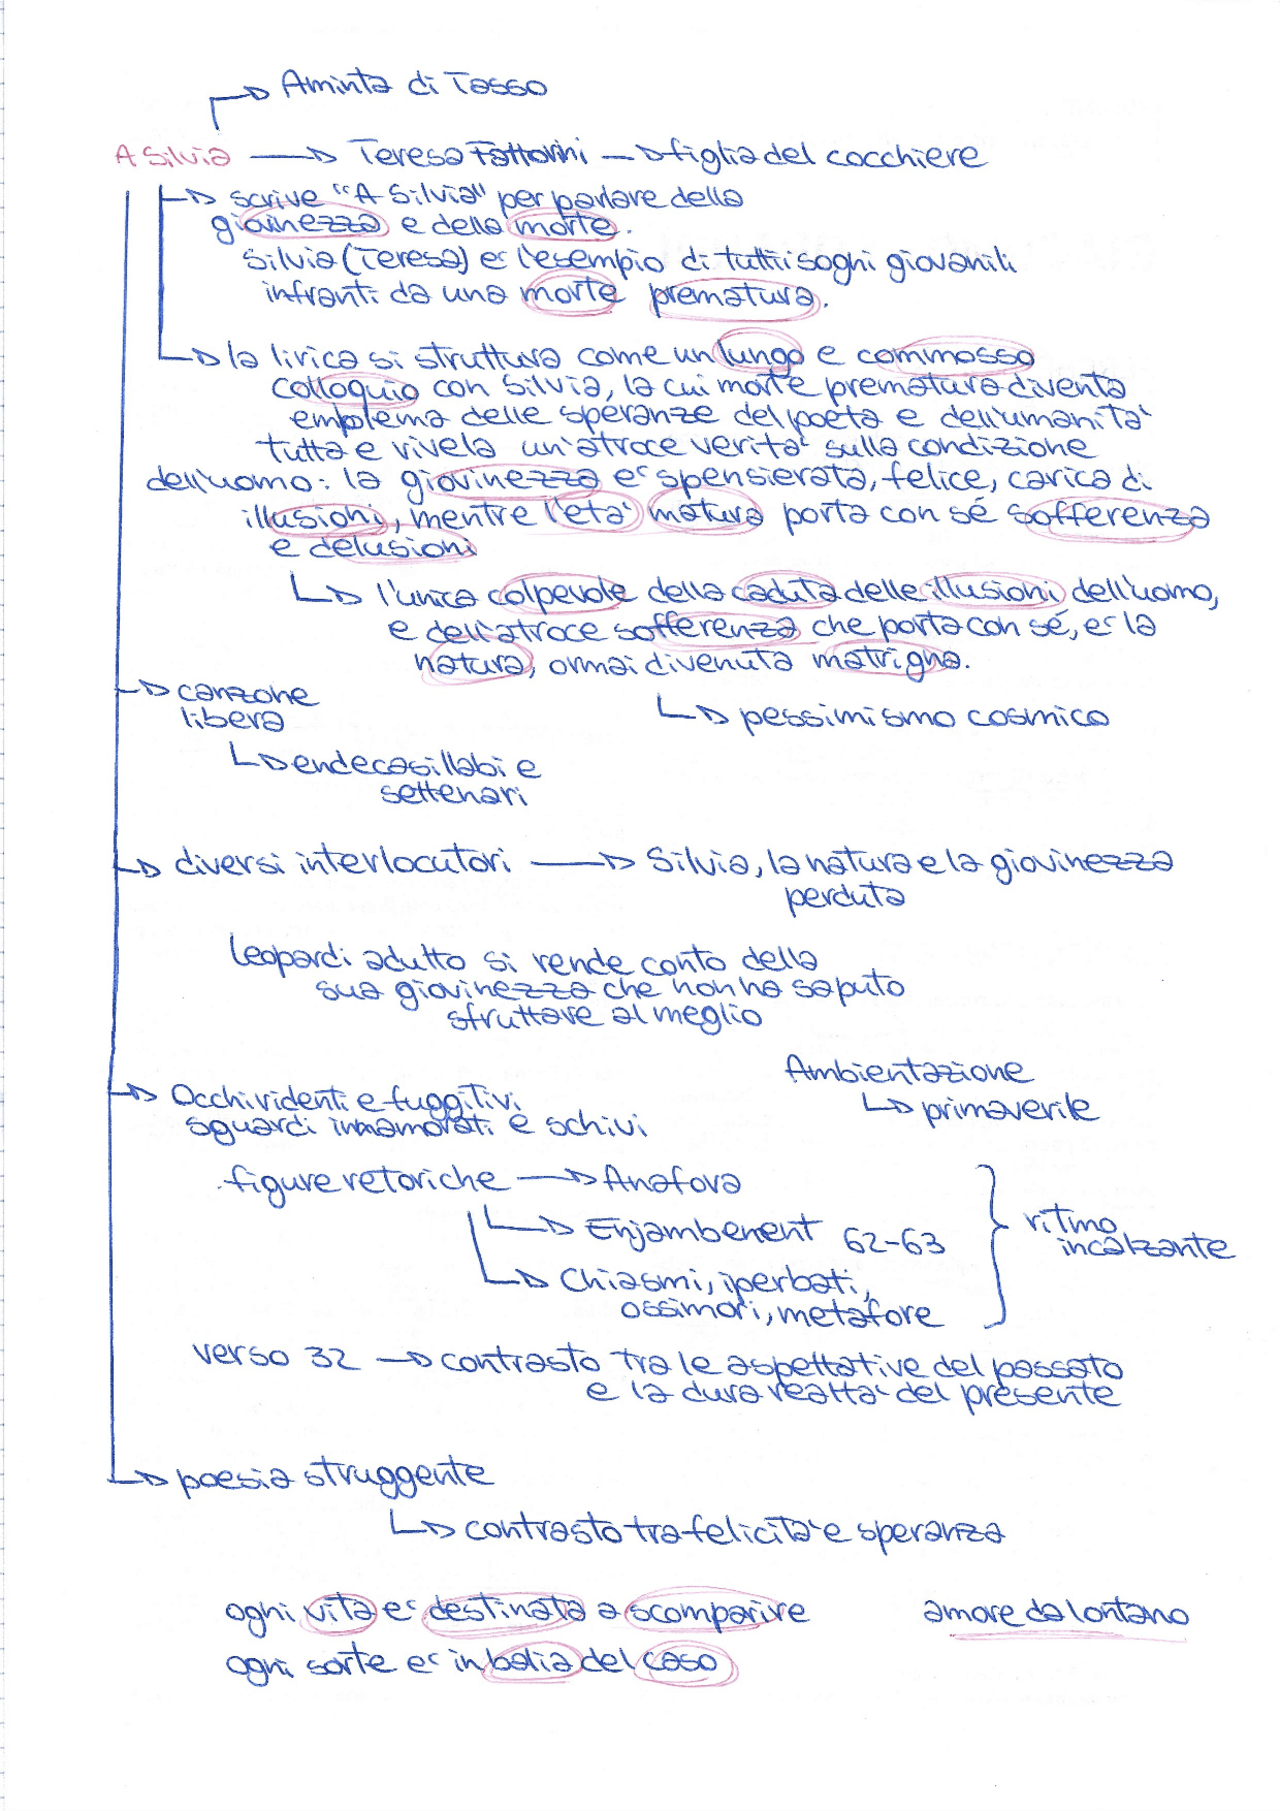 Aminta di Tasso
A Silvia → Teresa Fattorini → figlia del cocchiere
scrive "A Silvia" per parlare della
giovinezza e della morte.
Silvia (Teresa) e' l'esempio di tutti i sogni giovanili
infranti da una morte prematura.
la lirica si struttura come un lungo e commosso
colloquio con Silvia, la cui morte prematura diventa
emblema delle speranze del poeta e dell'umanita'
tutta e rivela un'atroce verita' sulla condizione
dell'uomo: la giovinezza e' spensierata, felice, carica di
illusioni, mentre l'eta' matura porta con sé sofferenza
e delusioni
l'unica colpevole della caduta delle illusioni dell'uomo,
e dell'atroce sofferenza che porta con sé, e' la
natura, ormai divenuta matrigna.
canzone
libera
pessimismo cosmico
endecasillabi e
settenari
diversi interlocutori → Silvia, la natura e la giovinezza
perduta
Leopardi adulto si rende conto della
sua giovinezza che non ha saputo
sfruttare al meglio
Ambientazione
primaverile
Occhi ridenti e fuggitivi
sguardi innamorati e schivi
figure retoriche → Anafora
Enjambement 62-63
ritmo
incalzante
Chiasmi, iperbati,
ossimori, metafore
verso 32 → contrasto tra le aspettative del passato
e la dura realta' del presente
poesia struggente
contrasto tra felicita' e speranza
ogni vita e' destinata a scomparire
amore da lontano
ogni sorte e' in balia del caso